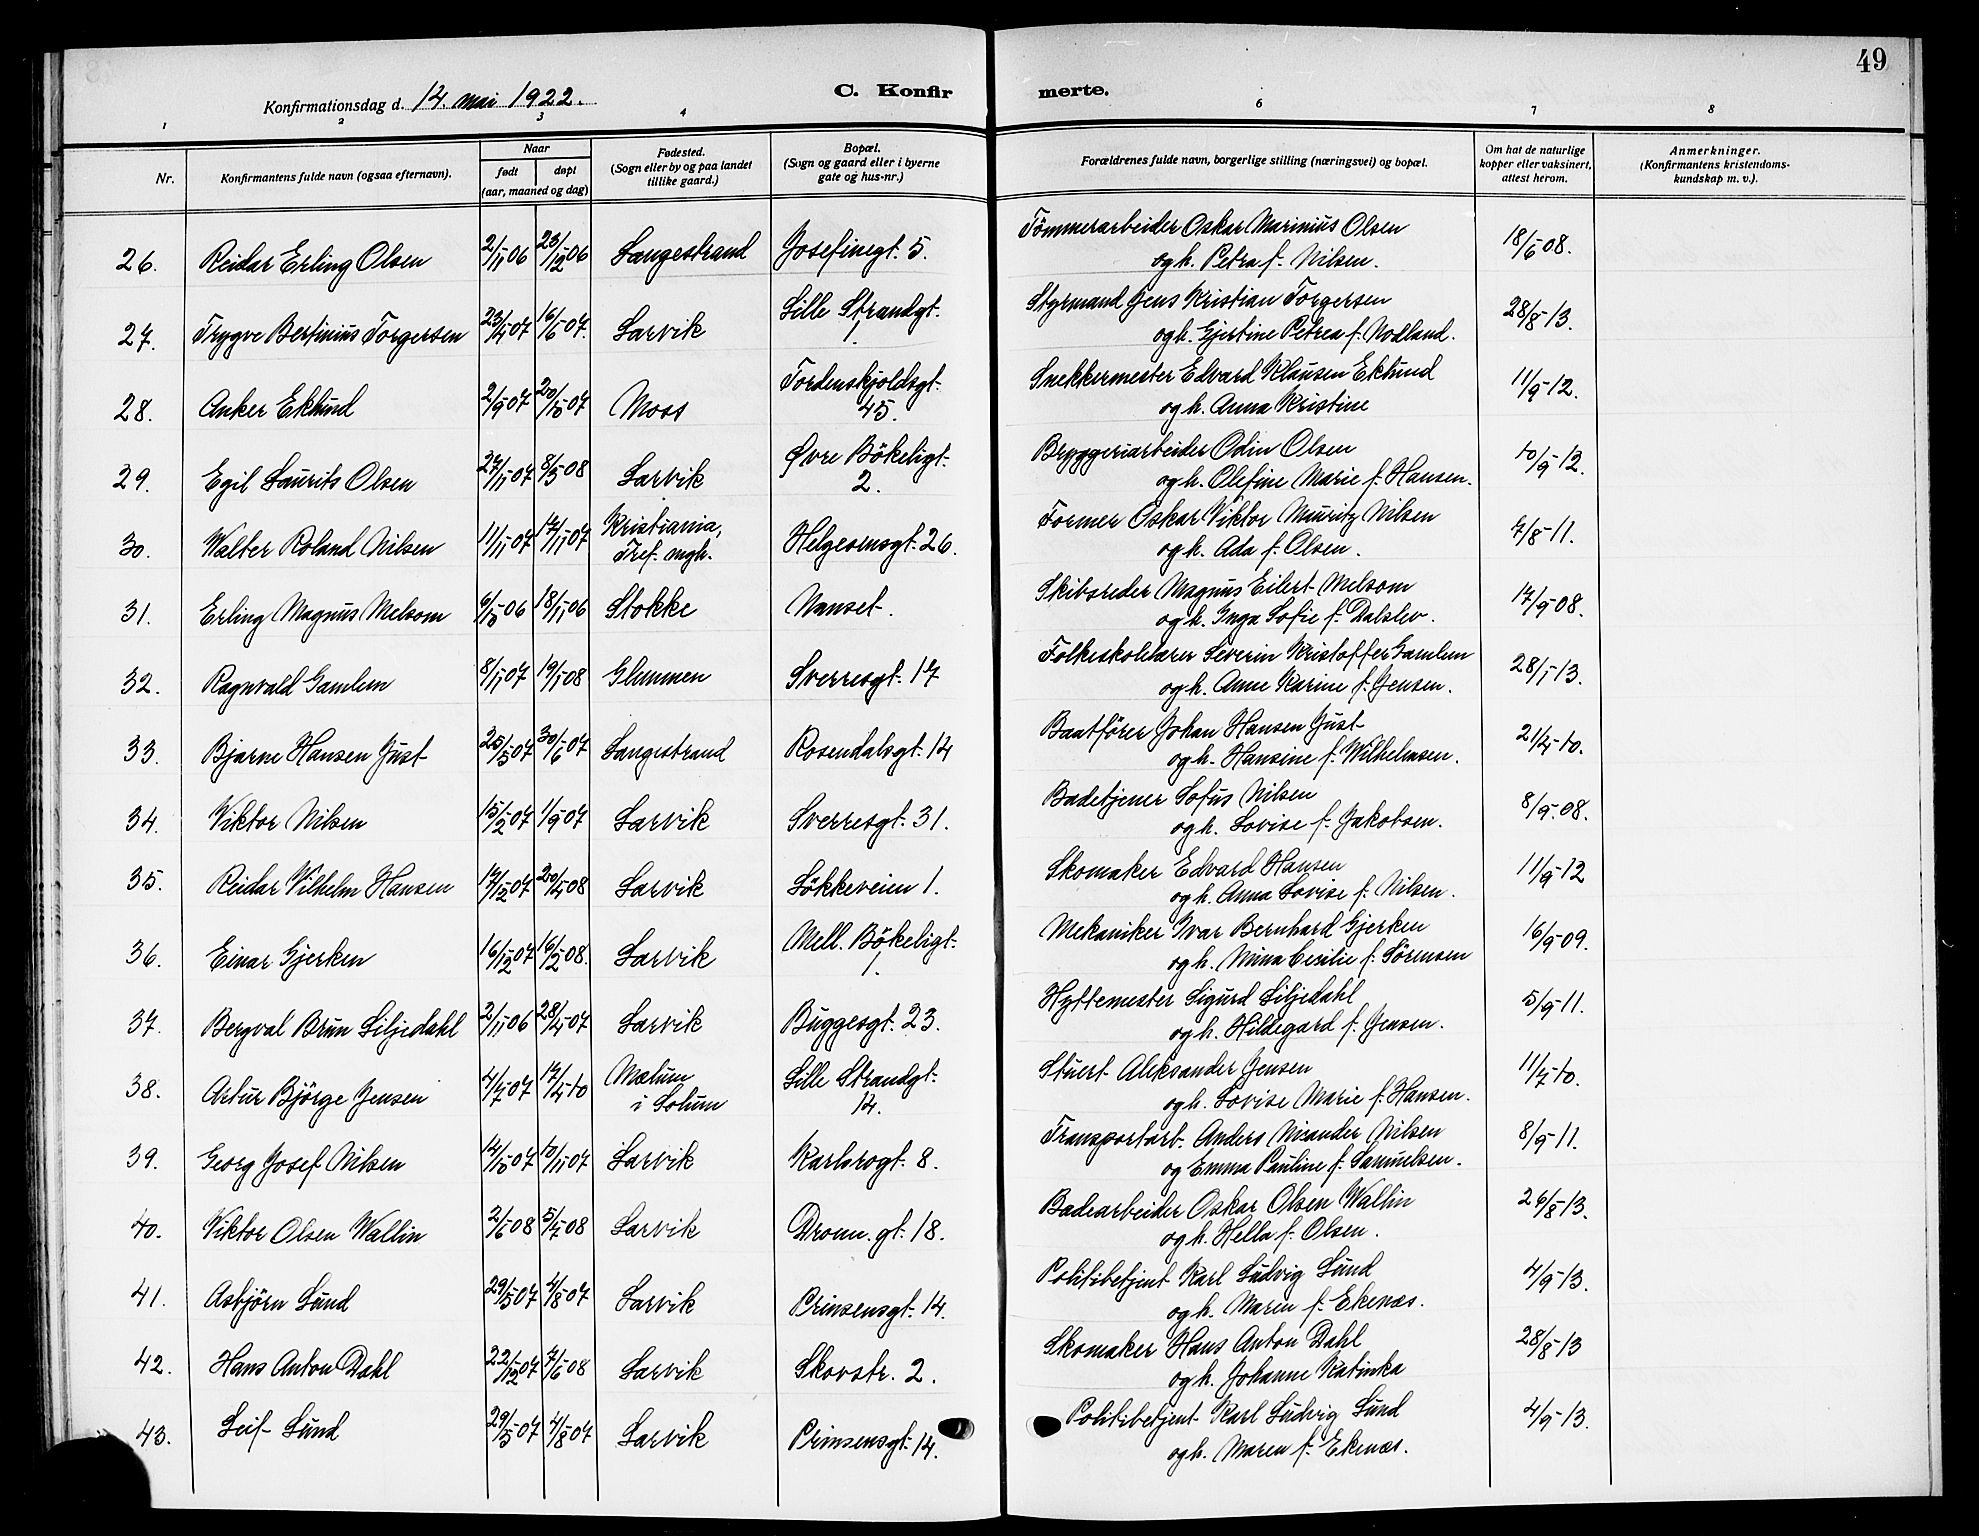 49
Konfirmationsdag d. 14. mai 1922.
C. Konfirmerte.
1 2 3 4 6 7 8
Nr.
Konfirmantens fulde navn (ogsaa efternavn).
Naar
født døpt
(aar, maaned og dag)
Fødested.
(Sogn eller by og paa landet
tillike gaard.)
Bopæl.
(Sogn og gaard eller i byerne
gate og hus-nr.)
Forældrenes fulde navn, borgerlige stilling (næringsvei) og bopæl.
Om hat de naturlige
kopper eller vaksinert,
attest herom.
Anmerkninger.
(Konfirmantens kristendoms-
kundskap m. v.).
26. Reidar Erling Olsen 2/11 06 23/12 06 Langestrand Josefinegt. 5. Tömmerarbeider Oskar Marinius Olsen 18/6 08.
og h. Petra f. Nilsen.
27. Trygve Bertinius Torgersen 23/4 07 16/6 07. Larvik Lille Strandgt. Styrmand Jens Kristian Torgersen 28/8-13.
1. og h. Gjertine Petrea f. Nodland.
28. Anker Eklund 2/9 07 20/10 07 Moss Tordenskjoldsgt. Snekkermester Edvard Klausen Eklund 11/9-12.
45. og h. Anna Kristine
29. Egil Laurits Olsen 27/11 07 8/3 08 Larvik Øvre Bökeligt. Bryggeriarbeider Odin Olsen 10/9-12.
2. og h. Olefine Marie f. Hansen.
30. Walter Roland Nilsen 11/11 07 17/11 07 Kristiania, Helgesensgt. 26. Former Oskar Viktor Mauritz Nilsen 7/8-11.
Tref. mgh. og h. Ada f. Olsen.
31. Erling Magnus Melsom 6/10 06 18/11 06 Stokke Nanset. Skibsreder Magnus Eilert Melsom 17/9-08.
og h. Inga Sofie f. Dalslev.
32. Ragnvald Gamlem 8/11 07 19/1 08 Glemmen Sverresgt. 17 Folkeskolelærer Severin Kristoffer Gamlem 28/1-13.
og h. Anne Karine f. Jensen.
33. Bjarne Hansen Just 25/5 07 30/6 07 Langestrand Rosendalsgt. 14 Baatförer Johan Hansen Just 21/4-10.
og h. Hansine f. Wilhelmsen.
34. Viktor Nilsen 15/2 07 1/9 07 Larvik Sverresgt. 31. Badetjener Sofus Nilsen 8/9-08.
og h. Lovise f. Jakobsen.
35. Reidar Vilhelm Hansen 17/12 07 20/4 08 Larvik Lökkeveien 1. Skomaker Edvard Hansen 11/9-12
og h. Anna Lovise f. Nilsen.
36. Einar Gjerken 16/12 07 16/2 08. Larvik Mell. Bökeligt. Mekaniker Ivar Bernhard Gjerken 16/9-09.
1. og h. Mina Cesilie f. Sörensen
37. Bergval Brun Liljedahl 2/11 06 28/4 07 Larvik Buggesgt. 23. Hyttemester Sigurd Liljedahl 5/9-11.
og h. Hildegard f. Jensen.
38. Artur Björge Jensen 4/7 07 17/4-10 Mælum Lille Strandgt. Stuert Aleksander Jensen 11/7-10.
i Solum 14. og h. Lovise Marie f. Hansen.
39. Georg Josef Nilsen 14/10 07 10/11 07 Larvik Karlsrogt. 8. Transportarb. Anders Nicander Nilsen 8/9-11.
og Emma Pauline f. Samuelsen.
40. Viktor Olsen Wallin 2/6 08 5/7 08 Larvik Dronn. gt. 18. Badearbeider Oskar Olsen Wallin 26/8-13.
og h. Hella f. Olsen.
41. Asbjörn Lund 29/5 07 4/8 07 Larvik Prinsensgt. 14. Politibetjent Karl Ludvig Lund 4/9-13.
og h. Maren f. Ekenæs.
42. Hans Anton Dahl 22/12 07 7/6 08 Larvik Skovstr. 2. Skomaker Hans Anton Dahl 28/8-13
og h. Johanne Katinka
43. Leif Lund 29/5 07 4/8 07 Larvik Prinsensgt. 14. Politibetjent Karl Ludvig Lund 4/9-13.
og h. Maren f. Ekenæs.